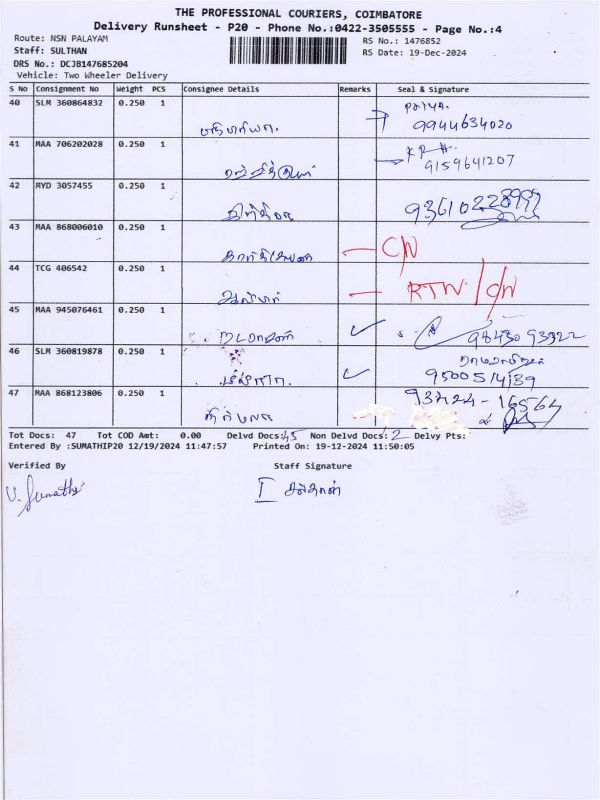 THE PROFESSIONAL COURIERS, COIMBATORE
Delivery Runsheet - P20 - Phone No.:0422-3505555 - Page No.:4
Route: NSN PALAYAM RS No.: 1476852
Staff: SULTHAN RS Date: 19-Dec-2024
DRS No.: DCJB147685204
Vehicle: Two Wheeler Delivery
S No Consignment No Weight PCS Consignee Details Remarks Seal & Signature
40 SLM 360864832 0.250 1
9944634020
41 MAA 706202028 0.250 1
9159641207
42 MYD 3057455 0.250 1
43 MAA 868006010 0.250 1 C/N
44 TCG 406542 0.250 1 RTN / C/N
45 MAA 945076461 0.250 1 98430 93322
46 SLM 360819878 0.250 1
9500514139
47 MAA 868123806 0.250 1
நிர்மலா
Tot Docs: 47 Tot COD Amt: 0.00 Delvd Docs: 45 Non Delvd Docs: 2 Delvy Pts:
Entered By :SUMATHIP20 12/19/2024 11:47:57 Printed On: 19-12-2024 11:50:05
Verified By Staff Signature
V. Sumathi சுல்தான்